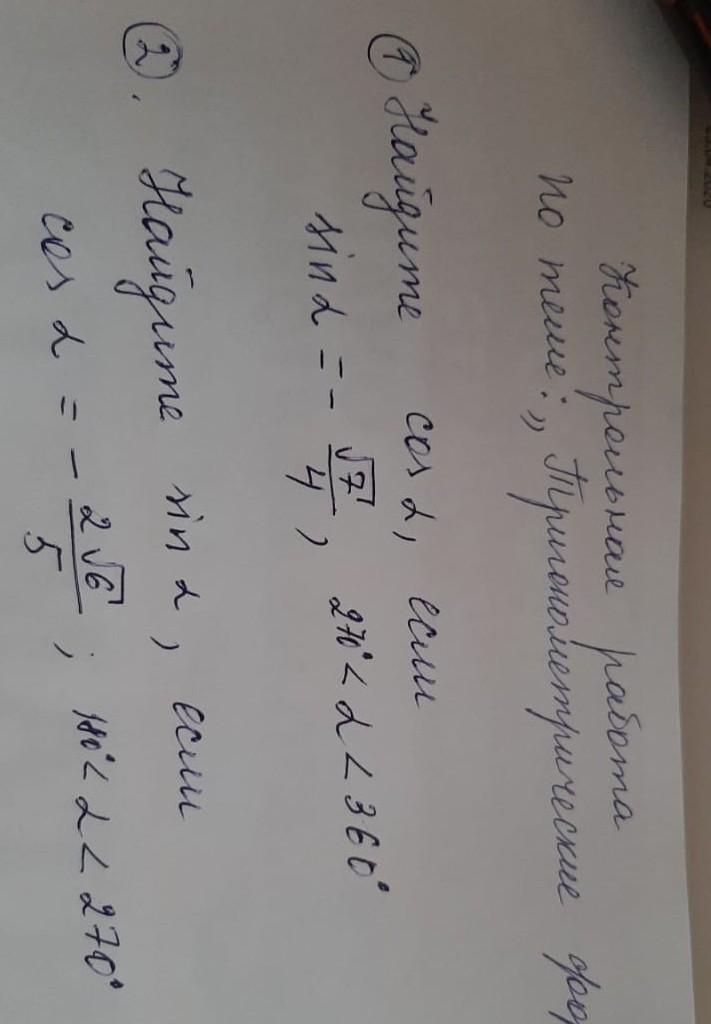 Контрольная работа
по теме: „Тригонометрические
① Найдите cos α, если
sin α = - √7/4, 270° < α < 360°
②. Найдите sin α, если
cos α = - 2√6/5; 180° < α < 270°